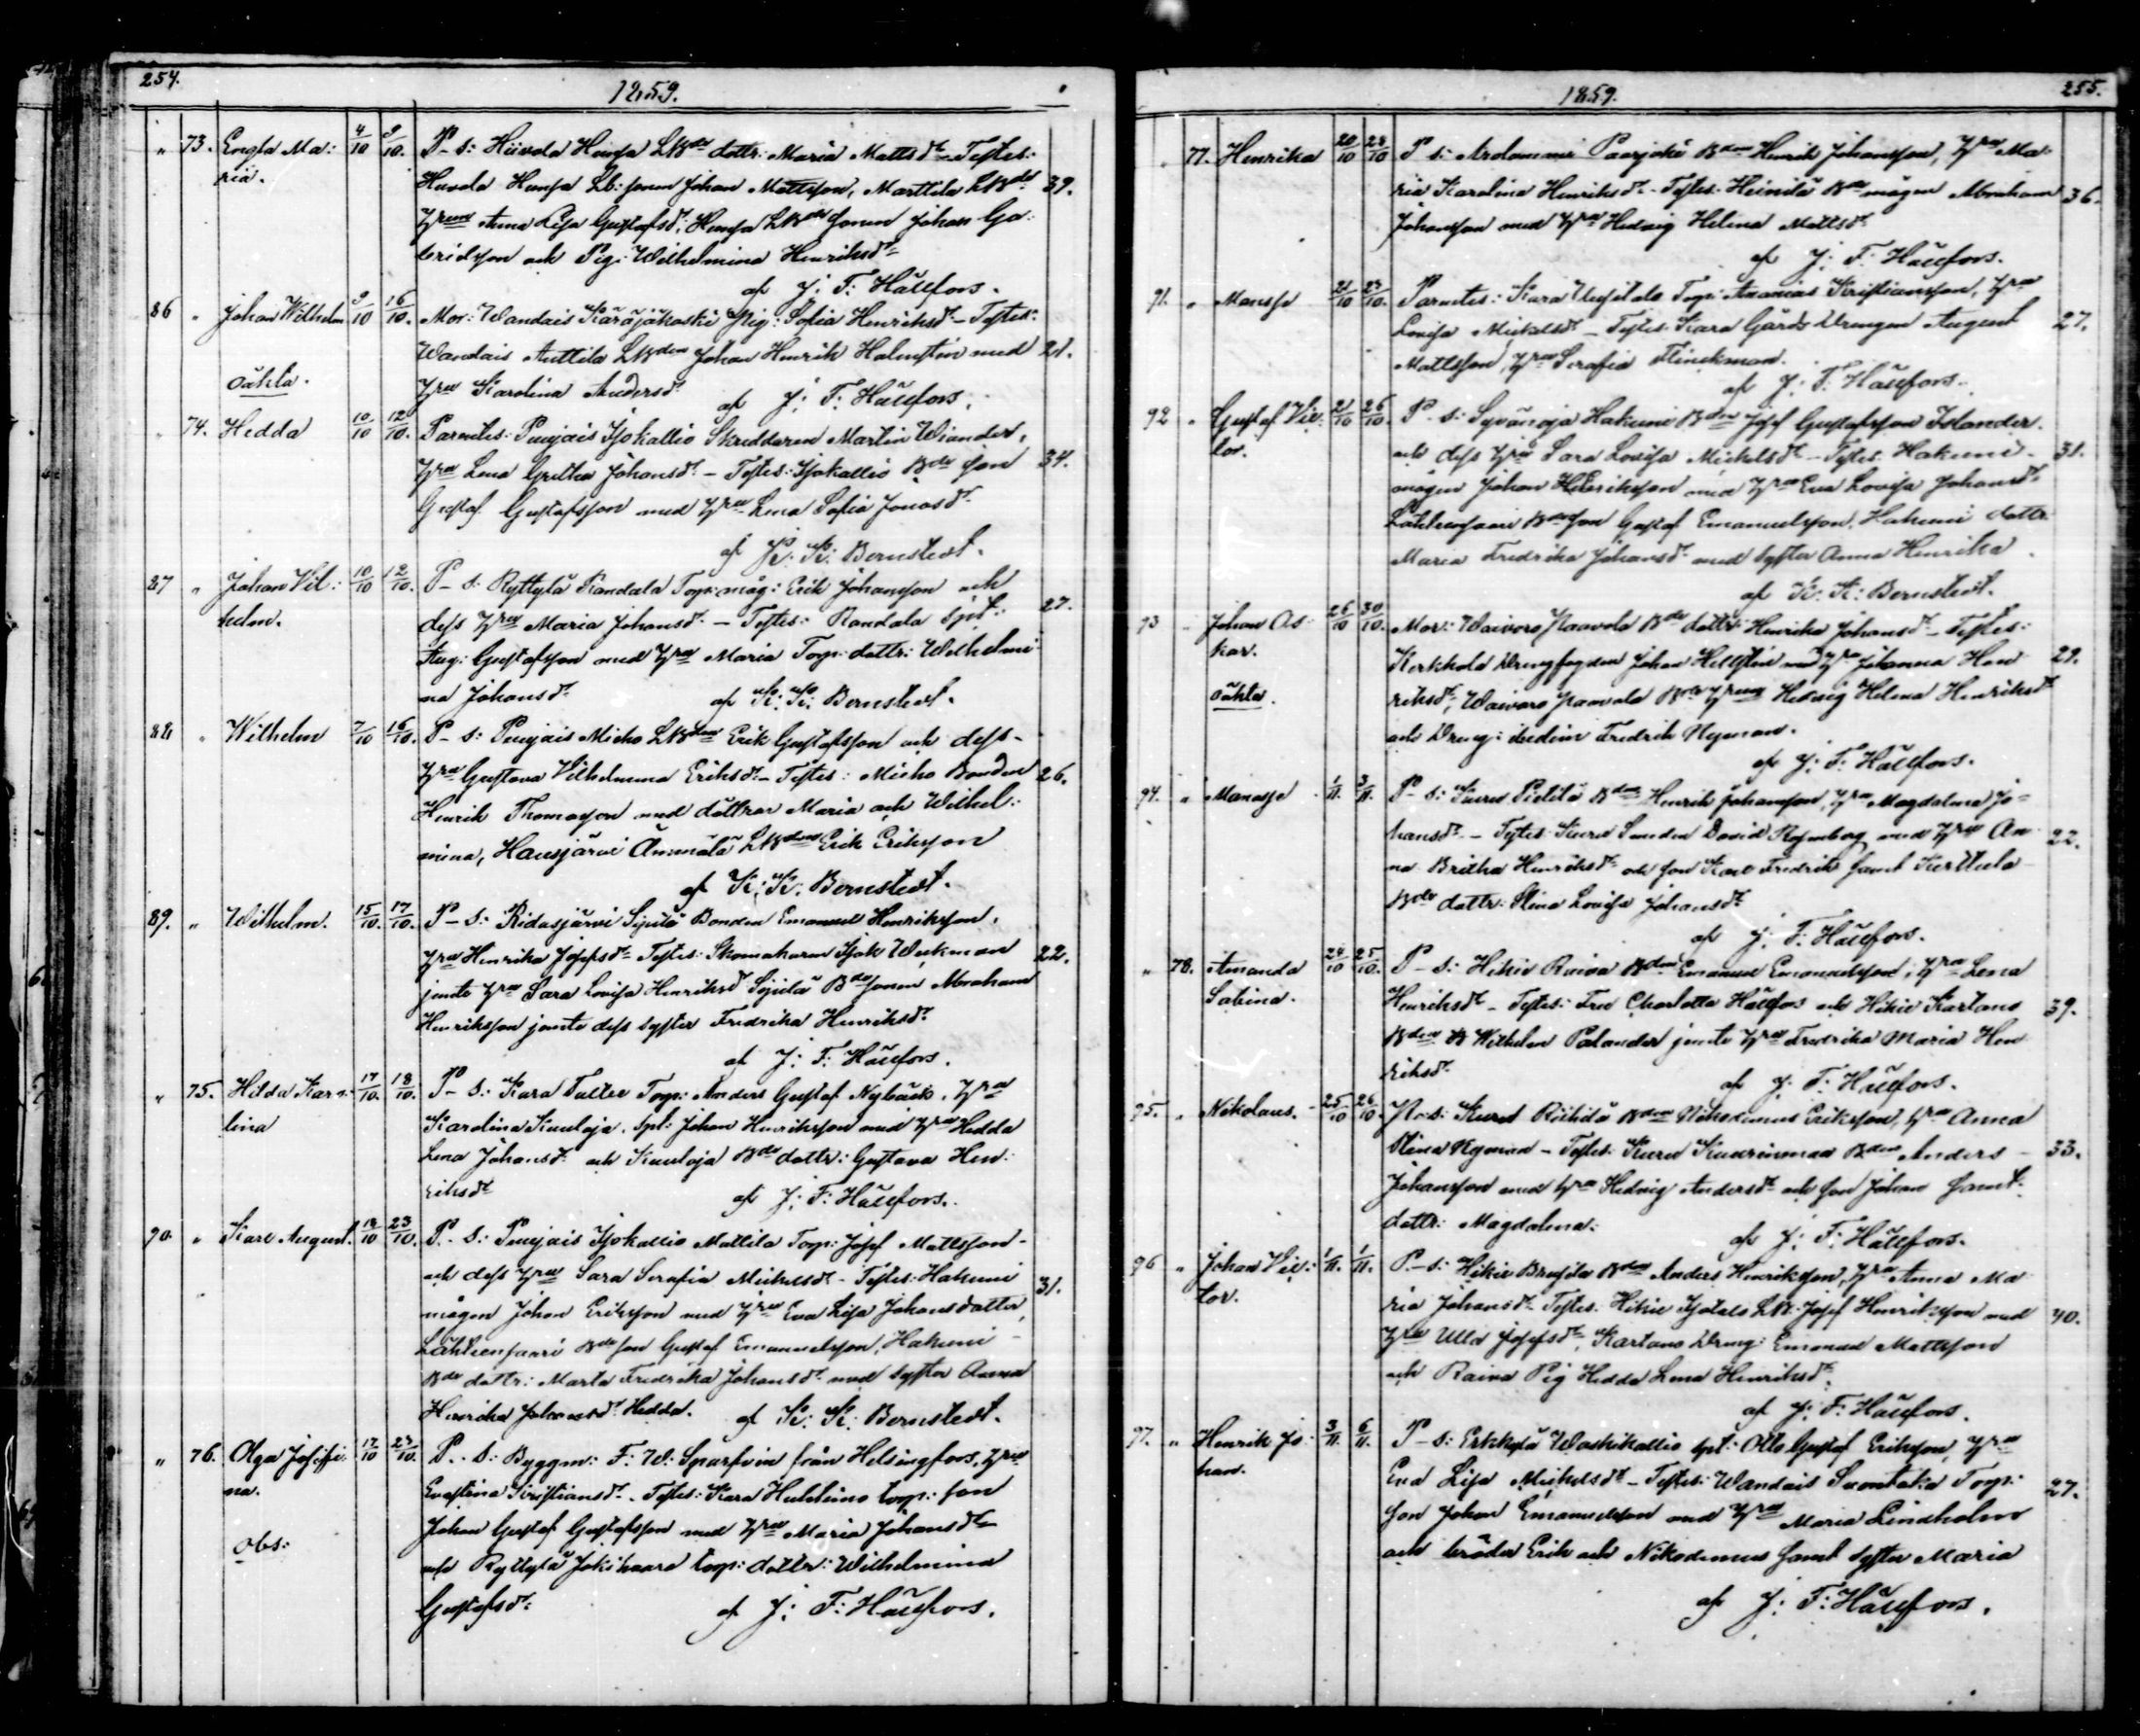 254.
1859.
" 73. Engla Ma: 4/10 9/10. P-s: Hüvola Hempa LBde dottr: Maria Mattsdr - Testes:
ria. Huvola Hempa Lb: sonen Johan Mattsson, Marttila LBds 39.
Hrun Anna Lisa Gustafsdr, Hempa LBds sonen Johan Ga-
brielsson och Pig: Wilhelmina Henriksdr
af J: F: Hällfors.
86 " Johan Wilhelm 9/10 16/10. Mor: Wandais Käräjäkoski Pig: Sofia Henriksdr - Testes:
Wandais Anttila LBden Johan Henrik Holmstén med 21.
oäkta. Hru Karolina Andersdr af J: F: Hällfors.
" 74. Hedda 10/10 12/10. Parentes: Punjais Isokallio Skreddaren Martin Wiander,
Hru Lena Gretha Johansdr - Testes: Isokallio Bds son 34.
Gustaf Gustafsson med Hru Lena Sofia Jonasdr
af K: K: Bernstedt.
87 " Johan Vil: 10/10 12/10. P-s: Ryttylä Randala Torp: måg: Erik Johansson och
helm. dess Hru Maria Johansdr - Testes: Randala Spl: 27.
Aug: Gustafsson med Hru Maria Torp: dottr: Wilhelmi
na Johansdr af K: K: Bernstedt.
88 " Wilhelm 7/10 16/10. P-s: Punjais Micko LBden Erik Gustafsson och dess-
Hru Gustava Vilhelmina Eriksdr - Testes: Micko Bonden 26.
Henrik Thomasson med döttrar Maria och Wilhel:
mina, Hausjärvi Ånnnälä LBden Erik Eriksson
af K: K: Bernstedt.
89. " Wilhelm. 15/10. 17/10. P-s: Ridasjärvi Sipilä Bonden Emanuel Henriksson,
Hru Henrika Josefsdr Testes: Skomakaren Isak Weckman 22.
jemte Hru Sara Lovisa Henriksdr Sipilä Bds sonen Abraham
Henriksson jemte dess syster Fredrika Henriksdr
af J: F: Hällfors.
" 75. Hilda Karo: 17/10. 18/10. P-s: Kara Taller Torp: Anders Gustaf Nybäck, Hru
lina Karolina Kuuloja, Spl: Johan Henriksson med Hru Hedda
Lena Johansdr och Kuuloja Bds dottr: Gustava Hen:
riksdr af J: F: Hällfors.
90. " Karl August. 18/10 23/10. P-s: Punjais Isokallio Mattila Torp: Josef Mattsson -
och dess Hru Sara Serafia Michelsdr - Testes: Hakuni 31.
mågen Johan Eriksson med Hru Eva Lisa Johansdotter,
Lähteensaari Bds son Gustaf Emanuelsson, Hakuni -
Bds dottr: Maria Fredrika Johansdr med syster Anna
Henrika Johansdr Hedda. af K: K: Bernstedt.
" 76. Olga Josefi- 17/10 23/10. P-s: Byggm: F: W: Sparfvin från Helsingfors, Hru
na. Evastina Kristiansdr - Testes: Kara Huhtimo torp: son
Johan Gustaf Gustafsson med Hru Maria Johansdr
Obs: och Ryttylä Jokivaara torp: dottr: Wilhelmina
Gustafsdr af J: F: Hällfors.
1859.
255.
" 77. Henrika 20/10 28/10 P-s: Arolammi Paarjoki Bden Henrik Johansson, Hru Ma-
ria Karolina Henriksdr - Testes: Heinilä Bds mågen Abraham 36.
Johansson med Hru Hedvig Helena Mattsdr
af J: F: Hällfors.
91. " Manasse 21/10 23/10. Parentes: Kara Uusitalo Torp: Ananias Kristiansson, Hru
Lovisa Mickelsdr - Testes: Kara Gårds Drengen August 27.
Mattsson, Hru Serafia Flinckman.
af J: F: Hällfors.
92 " Gustaf Vic: 21/10 26/10. P-s: Syvänoja Hakuni Bden Josef Gustafsson Islander
tor. och dess Hru Sara Lovisa Michelsdr - Testes: Hakuni - 31.
mågen Johan Henriksson med Hru Eva Lovisa Johansdr
Lähteensaari Bds son Gustaf Emanuelsson, Hakuni dottr
Maria Fredrika Johansdr med syster Anna Henrika
af K: K: Bernstedt.
93 " Johan Os: 26/10 30/10. Mor: Waivaro Paavola Bds dottr: Henrika Johansdr - Testes:
kar. Kerkkola Drengfogden Johan Hellstén med Hru Johanna Hen 29.
oäkta. riksdr, Waivaro Paavola Bds Hrun Hedvig Helena Henriksdr
och Dreng: Fredrik Nyman.
af J: F: Hällfors.
94. " Manasse 1/11. 3/11. P-s: Kuru Pietilä Bden Henrik Johansson, Hru Magdalena Jo-
hansdr - Testes: Kuru Smeden David Rosenberg med Hru An- 22.
na Britha Henriksdr och son Karl Fredrik samt Kurttula
Bds dottr: Stina Lovisa Johansdr
af J: F: Hällfors.
" 78. Amanda 24/10 25/10. P-s: Hikie Raiva Bden Emanuel Emanuelsson, Hru Lena
Sabina. Henriksdr - Testes: Fru Charlotta Hällfors och Hikie Kartano 39.
Bden B Wilhelm Palander jemte Hru Fredrika Maria Hen
riksdr af J: F: Hällfors.
95. " Nikolaus. 25/10 26/10. P-s: Kuru Riihilä Bden Nikodemus Eriksson, Hru Anna
Stina Nyman - Testes: Kuru Kuurinmaa Bden Anders - 33.
Johansson med Hru Hedvig Andersdr och son Johan samt
dottr: Magdalena: af J: F: Hällfors.
96 " Johan Vic: 1/11. 1/11. P-s: Hikie Brusila Bden Anders Henriksson, Hru Anna Ma
tor. ria Johansdr Testes: Hikie Isotalo LB: Josef Henriksson med 40.
Hru Ulla Josefsdr, Kartano Dreng: Emanuel Mattsson
och Raiva Pig Hedda Lena Henriksdr
af J: F: Hällfors.
97. " Henrik Jo: 3/11. 6/11. P-s: Erkkylä Waskikallio Spl: Otto Gustaf Eriksson, Hru
han. Eva Lisa Michelsdr - Testes: Wandais Suontaka Torp: 27.
son Johan Emanuelsson med Hru Maria Lindholm
och bröder Erik och Nikodemus samt syster Maria
af J: F: Hällfors.